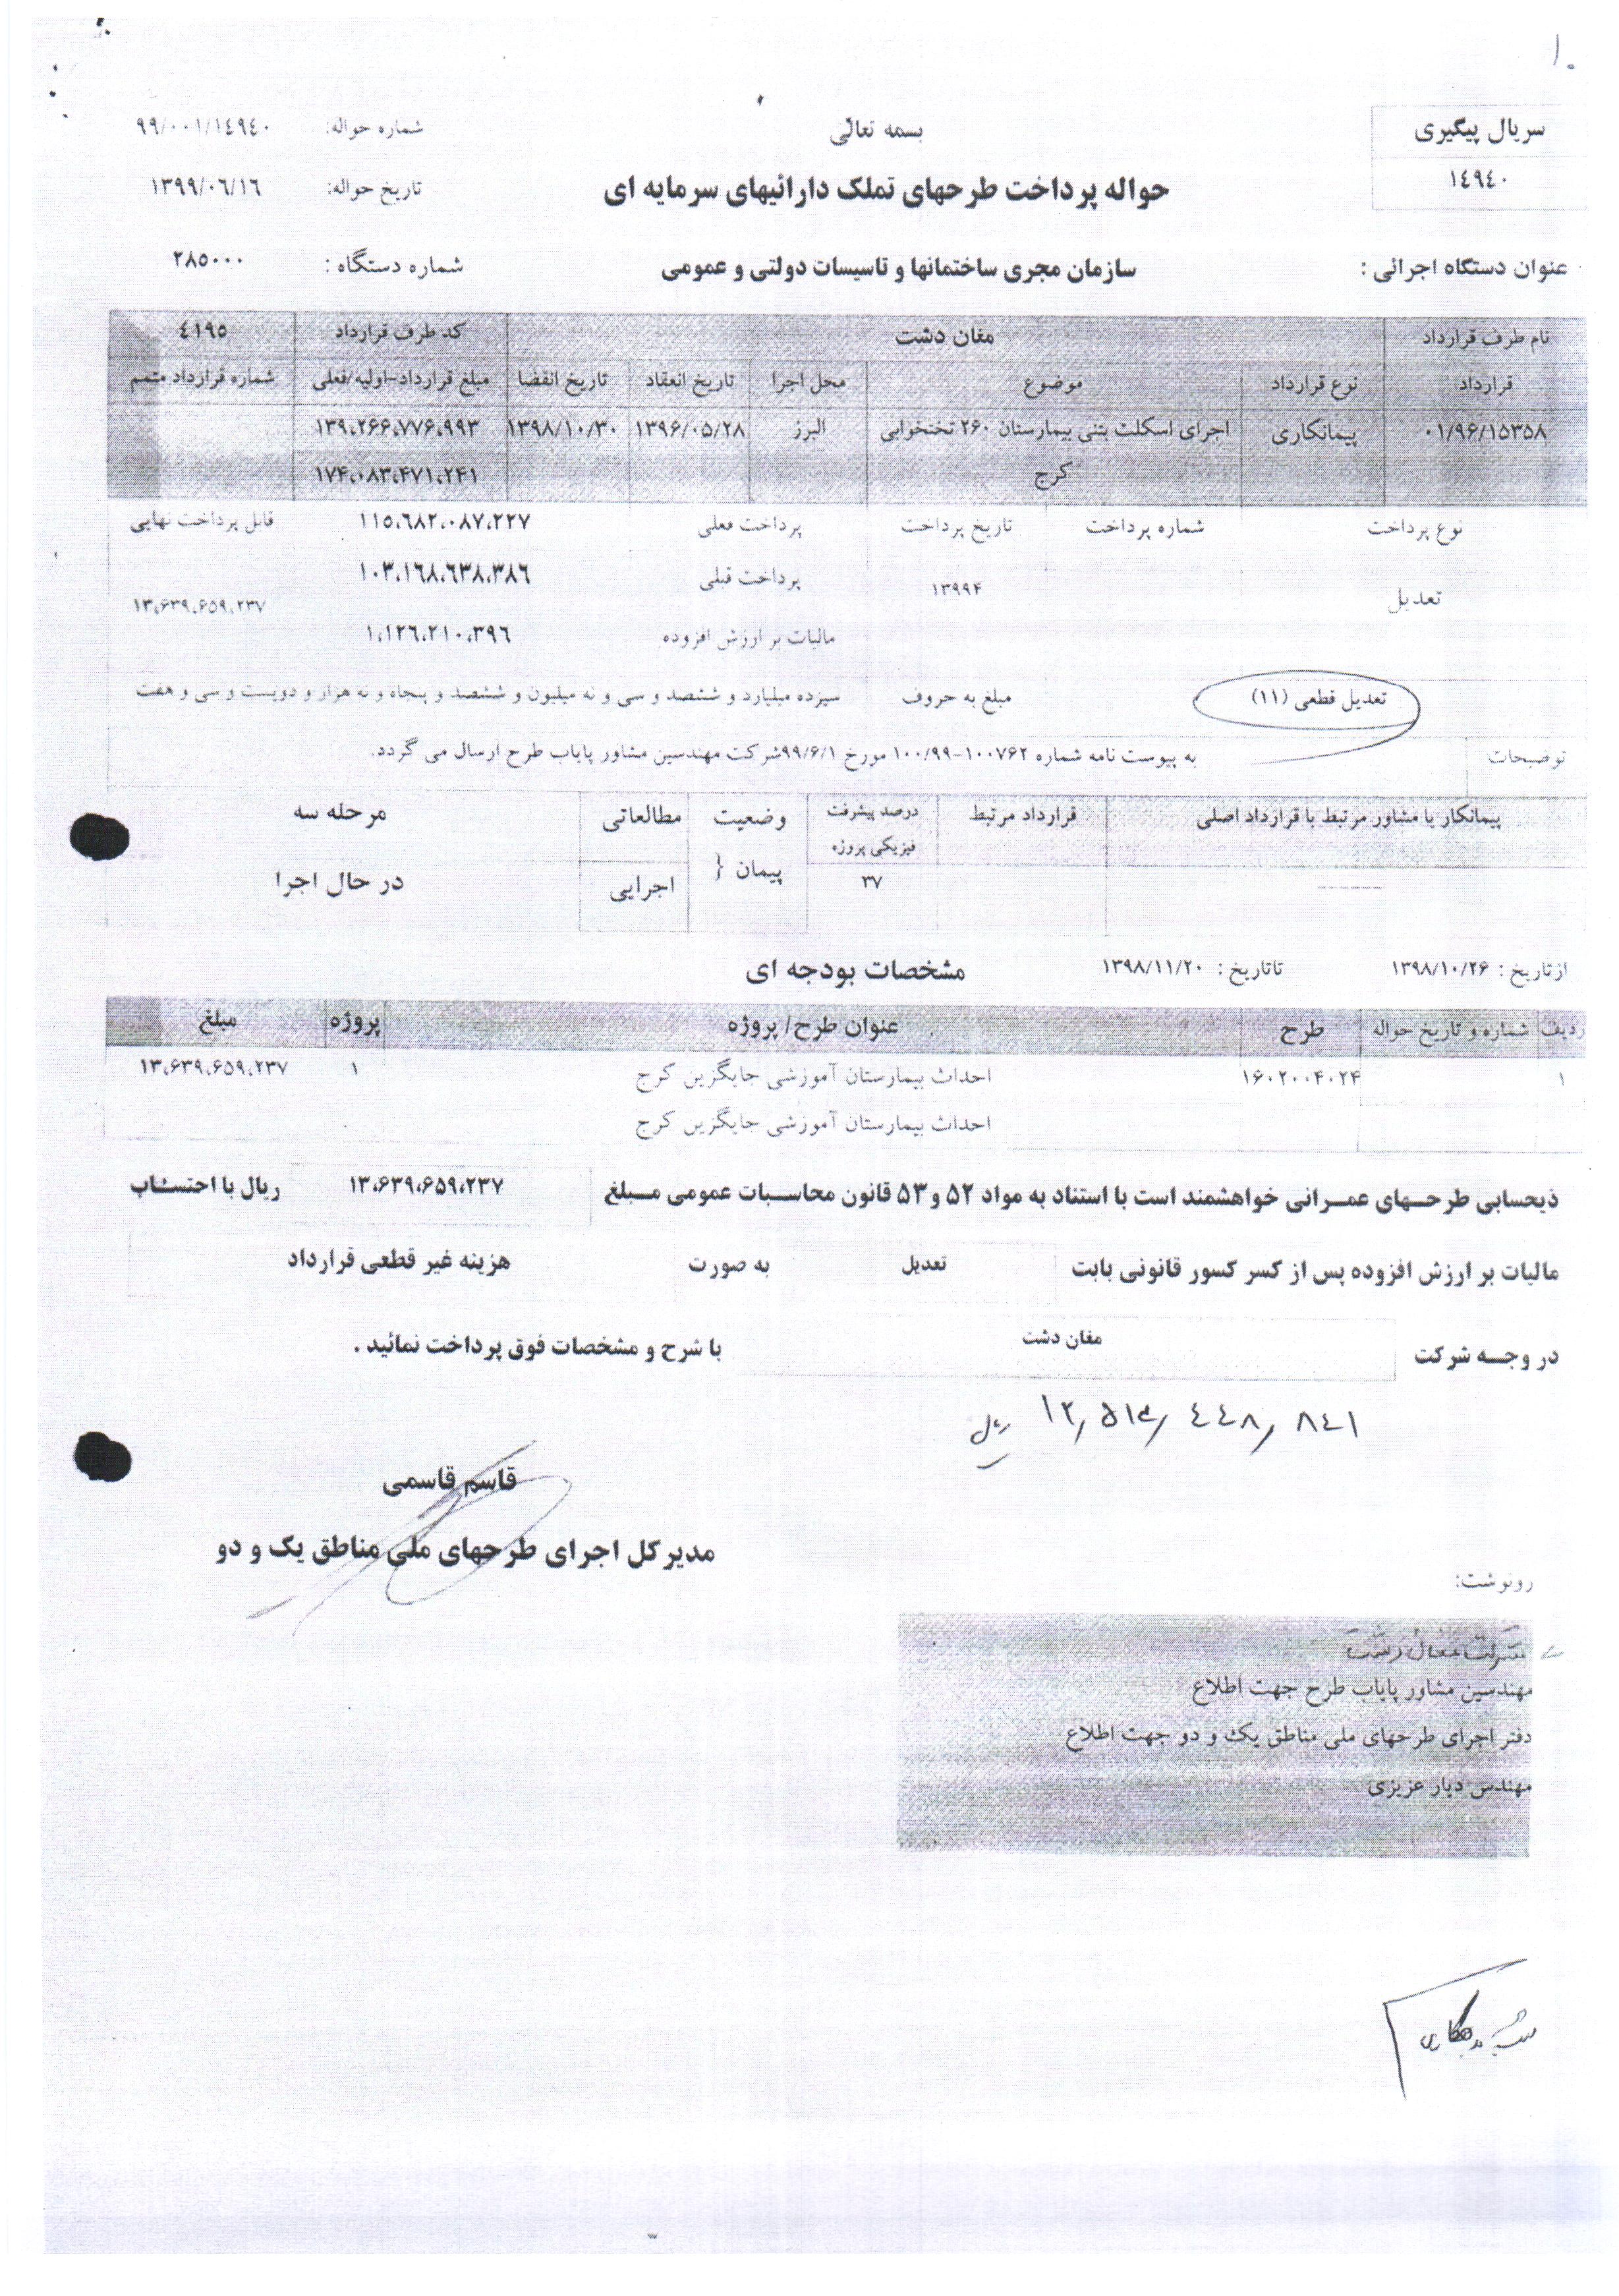 ۱۰
بسمه تعالی
سریال پیگیری
۱٤۹٤۰
شماره حواله: ۹۹/۰۰۱/۱٤۹٤۰
حواله پرداخت طرحهای تملک دارائیهای سرمایه ای
تاریخ حواله: ۱۳۹۹/۰٦/۱٦
عنوان دستگاه اجرائی : سازمان مجری ساختمانها و تاسیسات دولتی و عمومی شماره دستگاه : ۲۸۵۰۰۰
نام طرف قرارداد مغان دشت کد طرف قرارداد ٤۱۹۵
قرارداد نوع قرارداد موضوع محل اجرا تاریخ انعقاد تاریخ انقضا مبلغ قرارداد-اولیه/فعلی شماره قرارداد متمم
۰۱/۹۶/۱۵۳۵۸ پیمانکاری اجرای اسکلت بتنی بیمارستان ۲۶۰ تختخوابی البرز ۱۳۹۶/۰۵/۲۸ ۱۳۹۸/۱۰/۳۰ ۱۳۹،۲۶۶،۷۷۶،۹۹۳
کرج ۱۷۴،۰۸۳،۴۷۱،۲۴۱
نوع پرداخت شماره پرداخت تاریخ پرداخت پرداخت فعلی ۱۱۵،٦۸۲،۰۸۷،۲۲۷ قابل پرداخت نهایی
تعدیل ۱۳۹۹۴ پرداخت قبلی ۱۰۳،۱٦۸،٦۳۸،۳۸٦ ۱۳،۶۳۹،۶۵۹،۲۳۷
مالیات بر ارزش افزوده ۱،۱۲٦،۲۱۰،۳۹٦
تعدیل قطعی (۱۱) مبلغ به حروف سیزده میلیارد و ششصد و سی و نه میلیون و ششصد و پنجاه و نه هزار و دویست و سی و هفت
توضیحات به پیوست نامه شماره ۱۰۰۷۶۲-۱۰۰/۹۹ مورخ ۹۹/۶/۱شرکت مهندسین مشاور پایاب طرح ارسال می گردد.
پیمانکار یا مشاور مرتبط با قرارداد اصلی قرارداد مرتبط درصد پیشرفت فیزیکی پروژه وضعیت پیمان { مطالعاتی مرحله سه
-------- ۳۷ اجرایی در حال اجرا
از تاریخ : ۱۳۹۸/۱۰/۲۶ تاتاریخ : ۱۳۹۸/۱۱/۲۰ مشخصات بودجه ای
ردیف شماره و تاریخ حواله طرح عنوان طرح/ پروژه پروژه مبلغ
۱ ۱۶۰۲۰۰۴۰۲۴ احداث بیمارستان آموزشی جایگزین کرج ۱ ۱۳،۶۳۹،۶۵۹،۲۳۷
احداث بیمارستان آموزشی جایگزین کرج
ذیحسابی طرحهای عمرانی خواهشمند است با استناد به مواد ۵۲ و ۵۳ قانون محاسبات عمومی مبلغ ۱۳،۶۳۹،۶۵۹،۲۳۷ ریال با احتساب
مالیات بر ارزش افزوده پس از کسر کسور قانونی بابت تعدیل به صورت هزینه غیر قطعی قرارداد
در وجه شرکت مغان دشت با شرح و مشخصات فوق پرداخت نمائید .
۱۲,۵۱۳,٤٤۸,۸٤۱ ریال
قاسم قاسمی
مدیرکل اجرای طرحهای ملی مناطق یک و دو
رونوشت:
شرکت مغان دشت
مهندسین مشاور پایاب طرح جهت اطلاع
دفتر اجرای طرحهای ملی مناطق یک و دو جهت اطلاع
مهندس دیار عزیزی